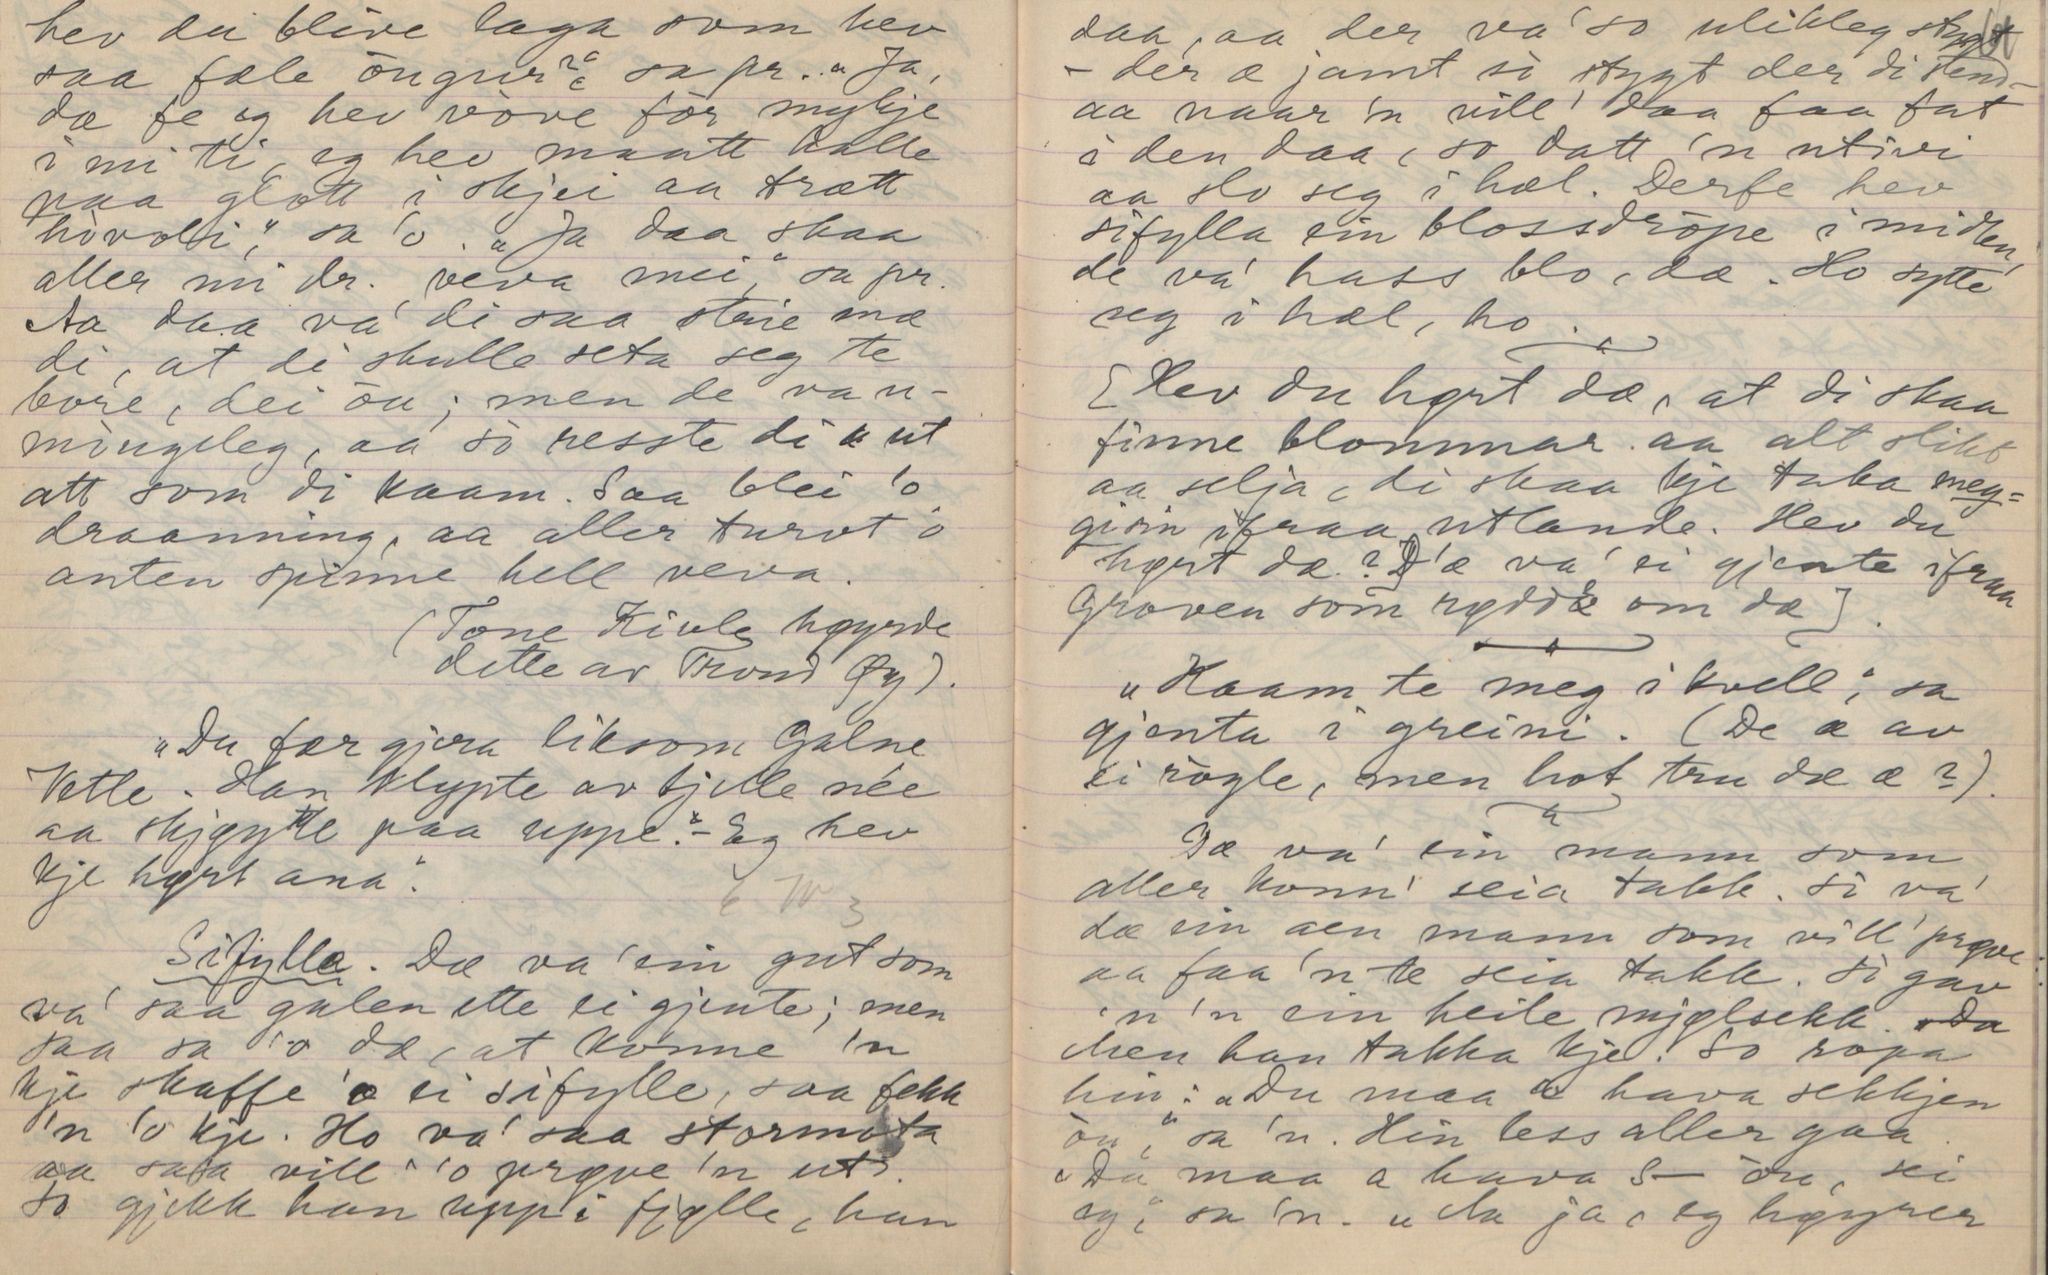 hev du blive laga som hev
saa fæle öugur?" sa pr. „Ja,
dæ fe eg hev vove för mykje
i mi ti, eg hev maatt halle
paa glott i skjei aa trætt
hövolsi", sa 'o. „Ja daa skaa
aller mi dr. veva mei", sa pr.
Aa daa va' di saa sterie mæ
di, at di skulle seta seg te
bore, dei öu; men de va u-
möugeleg, aa so resste di ut
att som di kaam. Saa blei 'o
draanning, aa aller turvt 'o
anten spinne hell veva.
(Tone Kivle høyrde
dette av Trond Øy).
„Du fær gjera liksom Galne
Vetle. Han klypte av kjole née
aa skjøytte paa uppe." – Eg hev
kje hørt ana".
Sifylla. Dæ va' ein gut som
va' saa galen ette ei gjente; men
saa sa 'o dæ, at konne 'n
kje skaffe 'o ei sifylle, saa fekk
'n 'o kje. Ho va' saa stormota
aa saa vill' 'o prøve 'n ut.
So gjekk han upp i fjølle, han
daa, aa der va' so ulikleg stygt
– der æ jamt so stygt der di stend –
aa naar 'n vill' daa faa fat
i den daa, so datt 'n utivi
aa slo seg i hæl. Derfe hev
sifylla ein blossdrope i midten,
de va' hass blo, dæ. Ho sytte
seg i hæl, ho.
[Hev du hørt dæ, at di skaa
finne blommar aa alt slikt
aa selja, di skaa kje taka meg-
gisin ifraa utlande. Hev du
hørt dæ? Dæ va' ei gjente ifraa
Groven som rødde om dæ].
„Kaam te meg i kvell", sa
gjenta i greini. (De æ av
ei rögle, men hot tru dæ æ?).
Dæ va' ein mann som
aller konn' seia takk. So va'
dæ ein aen mann som vill' prøve
aa faa 'n te seia takk. So gav
'n 'n ein heile mjølsekk.
Men han takka kje. So ropa
hin: „Du maa a hava sekkjen
öu", sa 'n. Hin less aller gaa.
„Du maa a hava S– öu, sei
eg", sa 'n. „Aa ja, eg høyrer